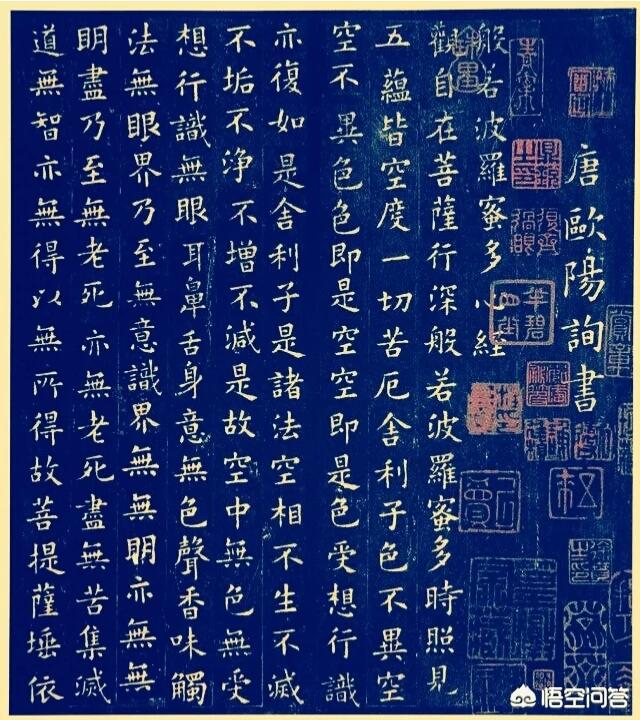 唐歐陽詢書
般若波羅蜜多心經
觀自在菩薩行深般若波羅蜜多時照見
五蘊皆空度一切苦厄舍利子色不異空
空不異色色即是空空即是色受想行識
亦復如是舍利子是諸法空相不生不滅
不垢不淨不增不減是故空中無色無受
想行識無眼耳鼻舌身意無色聲香味觸
法無眼界乃至無意識界無無明亦無無
明盡乃至無老死亦無老死盡無苦集滅
道無智亦無得以無所得故菩提薩埵依
悟空问答